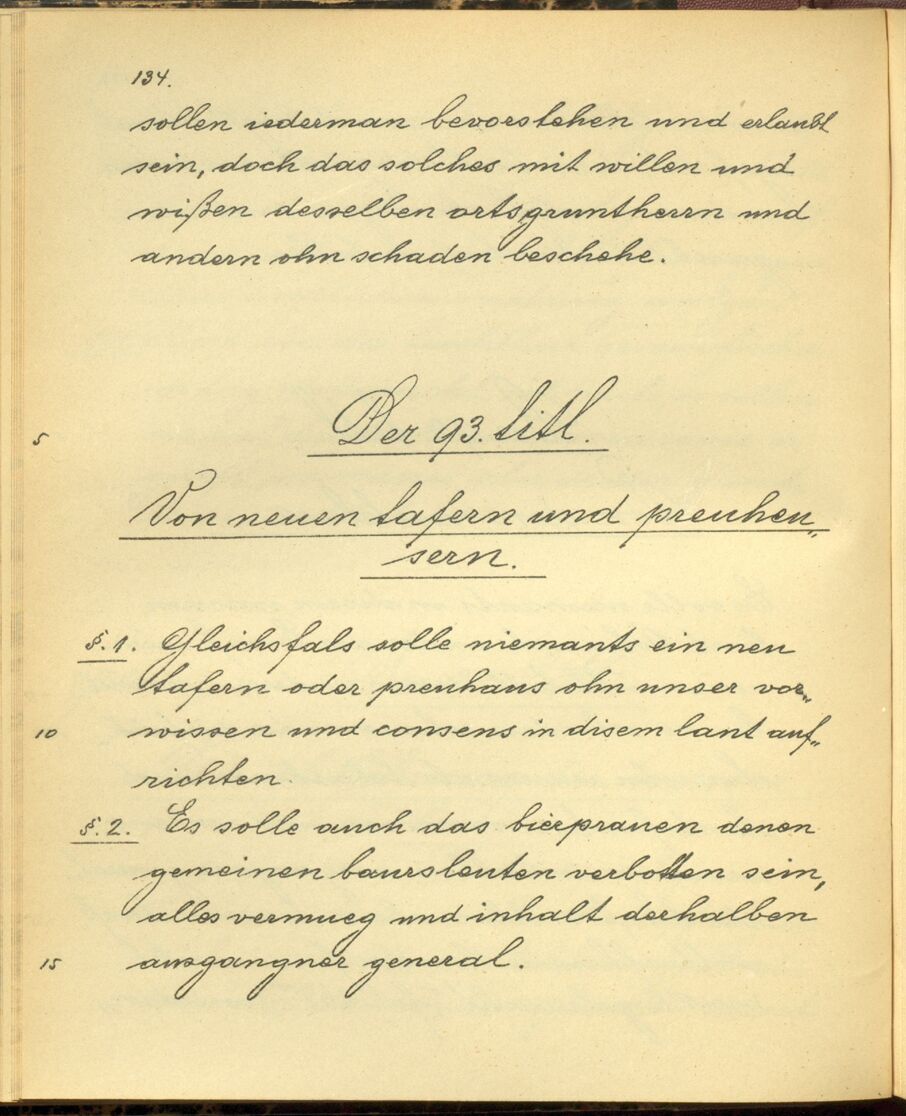 134.
sollen iederman bevorstehen und erlaubt
sein, doch das solches mit willen und
wißen desselben ortsgruntherrn und
andern ohn schaden beschehe.
5 Der 93. titl.
Von neuen tafern und preuheu„
sern.
§. 1. Gleichsfals solle niemants ein neu
tafern oder preuhaus ohn unser vor„
10 wissen und consens in disem lant auf„
richten.
§. 2. Es solle auch das bierprauen denen
gemeinen baursleuten verbotten sein,
alles vermueg und inhalt derhalben
15 ausgangner general.